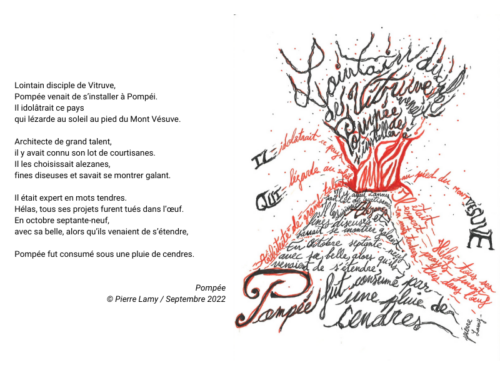 Lointain disciple de Vitruve,
Pompée venait de s'installer à Pompéi.
Il idolâtrait ce pays
qui lézarde au soleil au pied du Mont Vésuve.
Architecte de grand talent,
il y avait connu son lot de courtisanes.
Il les choisissait alezanes,
fines diseuses et savait se montrer galant.
Il était expert en mots tendres.
Hélas, tous ses projets furent tués dans l'œuf.
En octobre septante-neuf,
avec sa belle, alors qu'ils venaient de s'étendre,
Pompée fut consumé sous une pluie de cendres.
Pompée
© Pierre Lamy / Septembre 2022
Lointain du
de Vitruve
Pompée
IL idolâtrait ce pays
QUI lézarde au
au pied du mont
VÉSUVE
Architecte de grand talent
fines diseuses
savait se montrer
En octobre septante
avec sa belle, alors qu'ils
venaient de s'étendre,
Pompée fut consumé par
une pluie de
cendres
pierre
Lamy